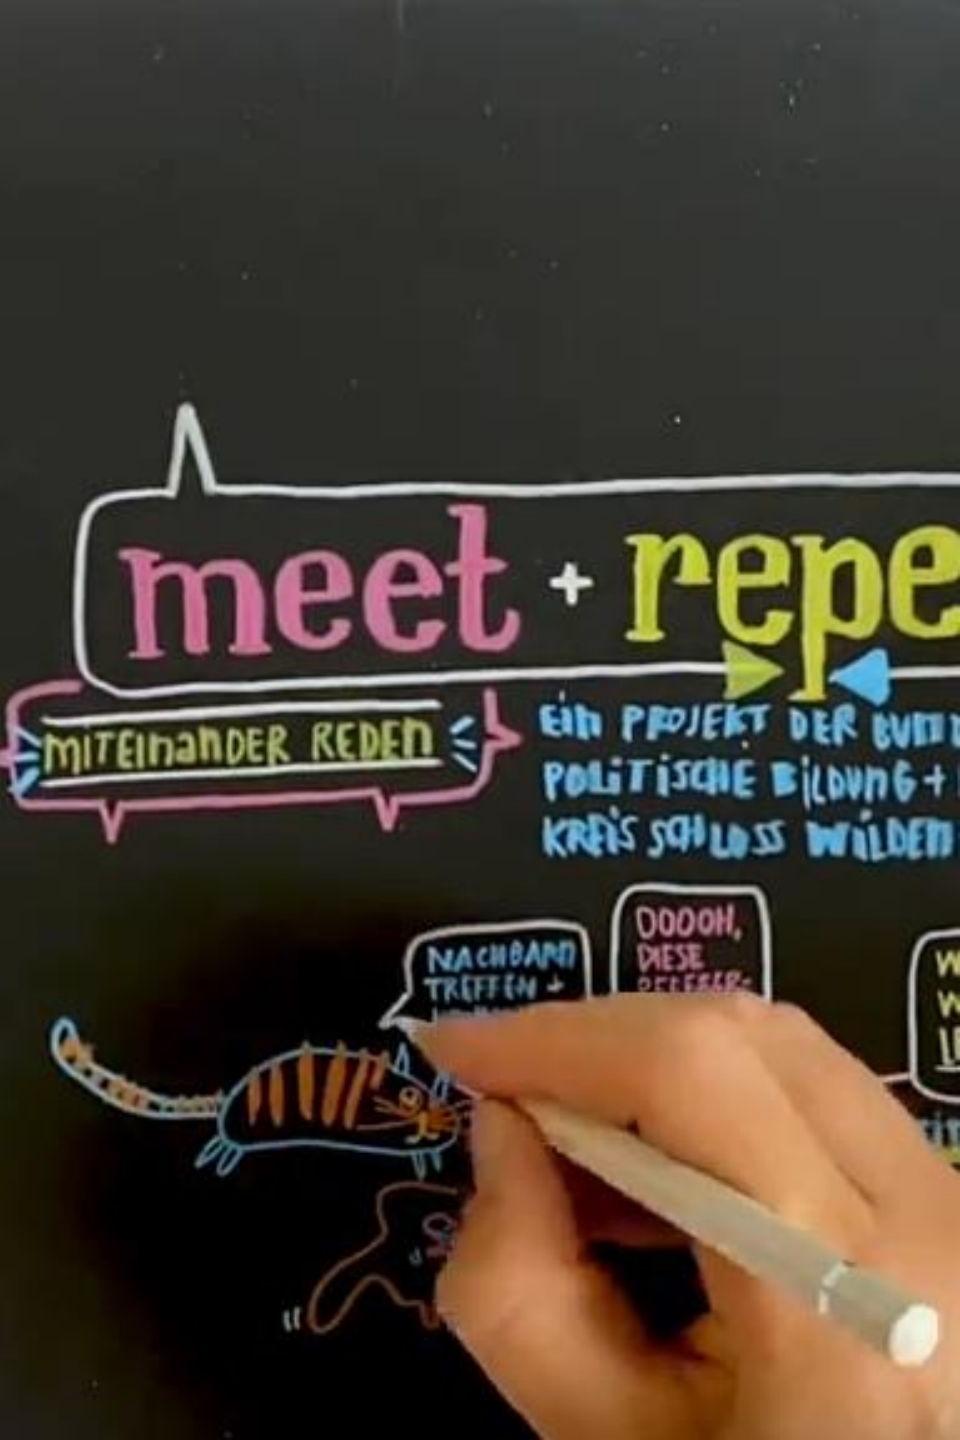 meet + repe
MITEINANDER REDEN
EIN PROJEKT DER BUN
POLITISCHE BILDUNG +
KREIS SCHLOSS WILDEN
NACHBARN
TREFFEN +
DOOOH,
DIESE
W
W